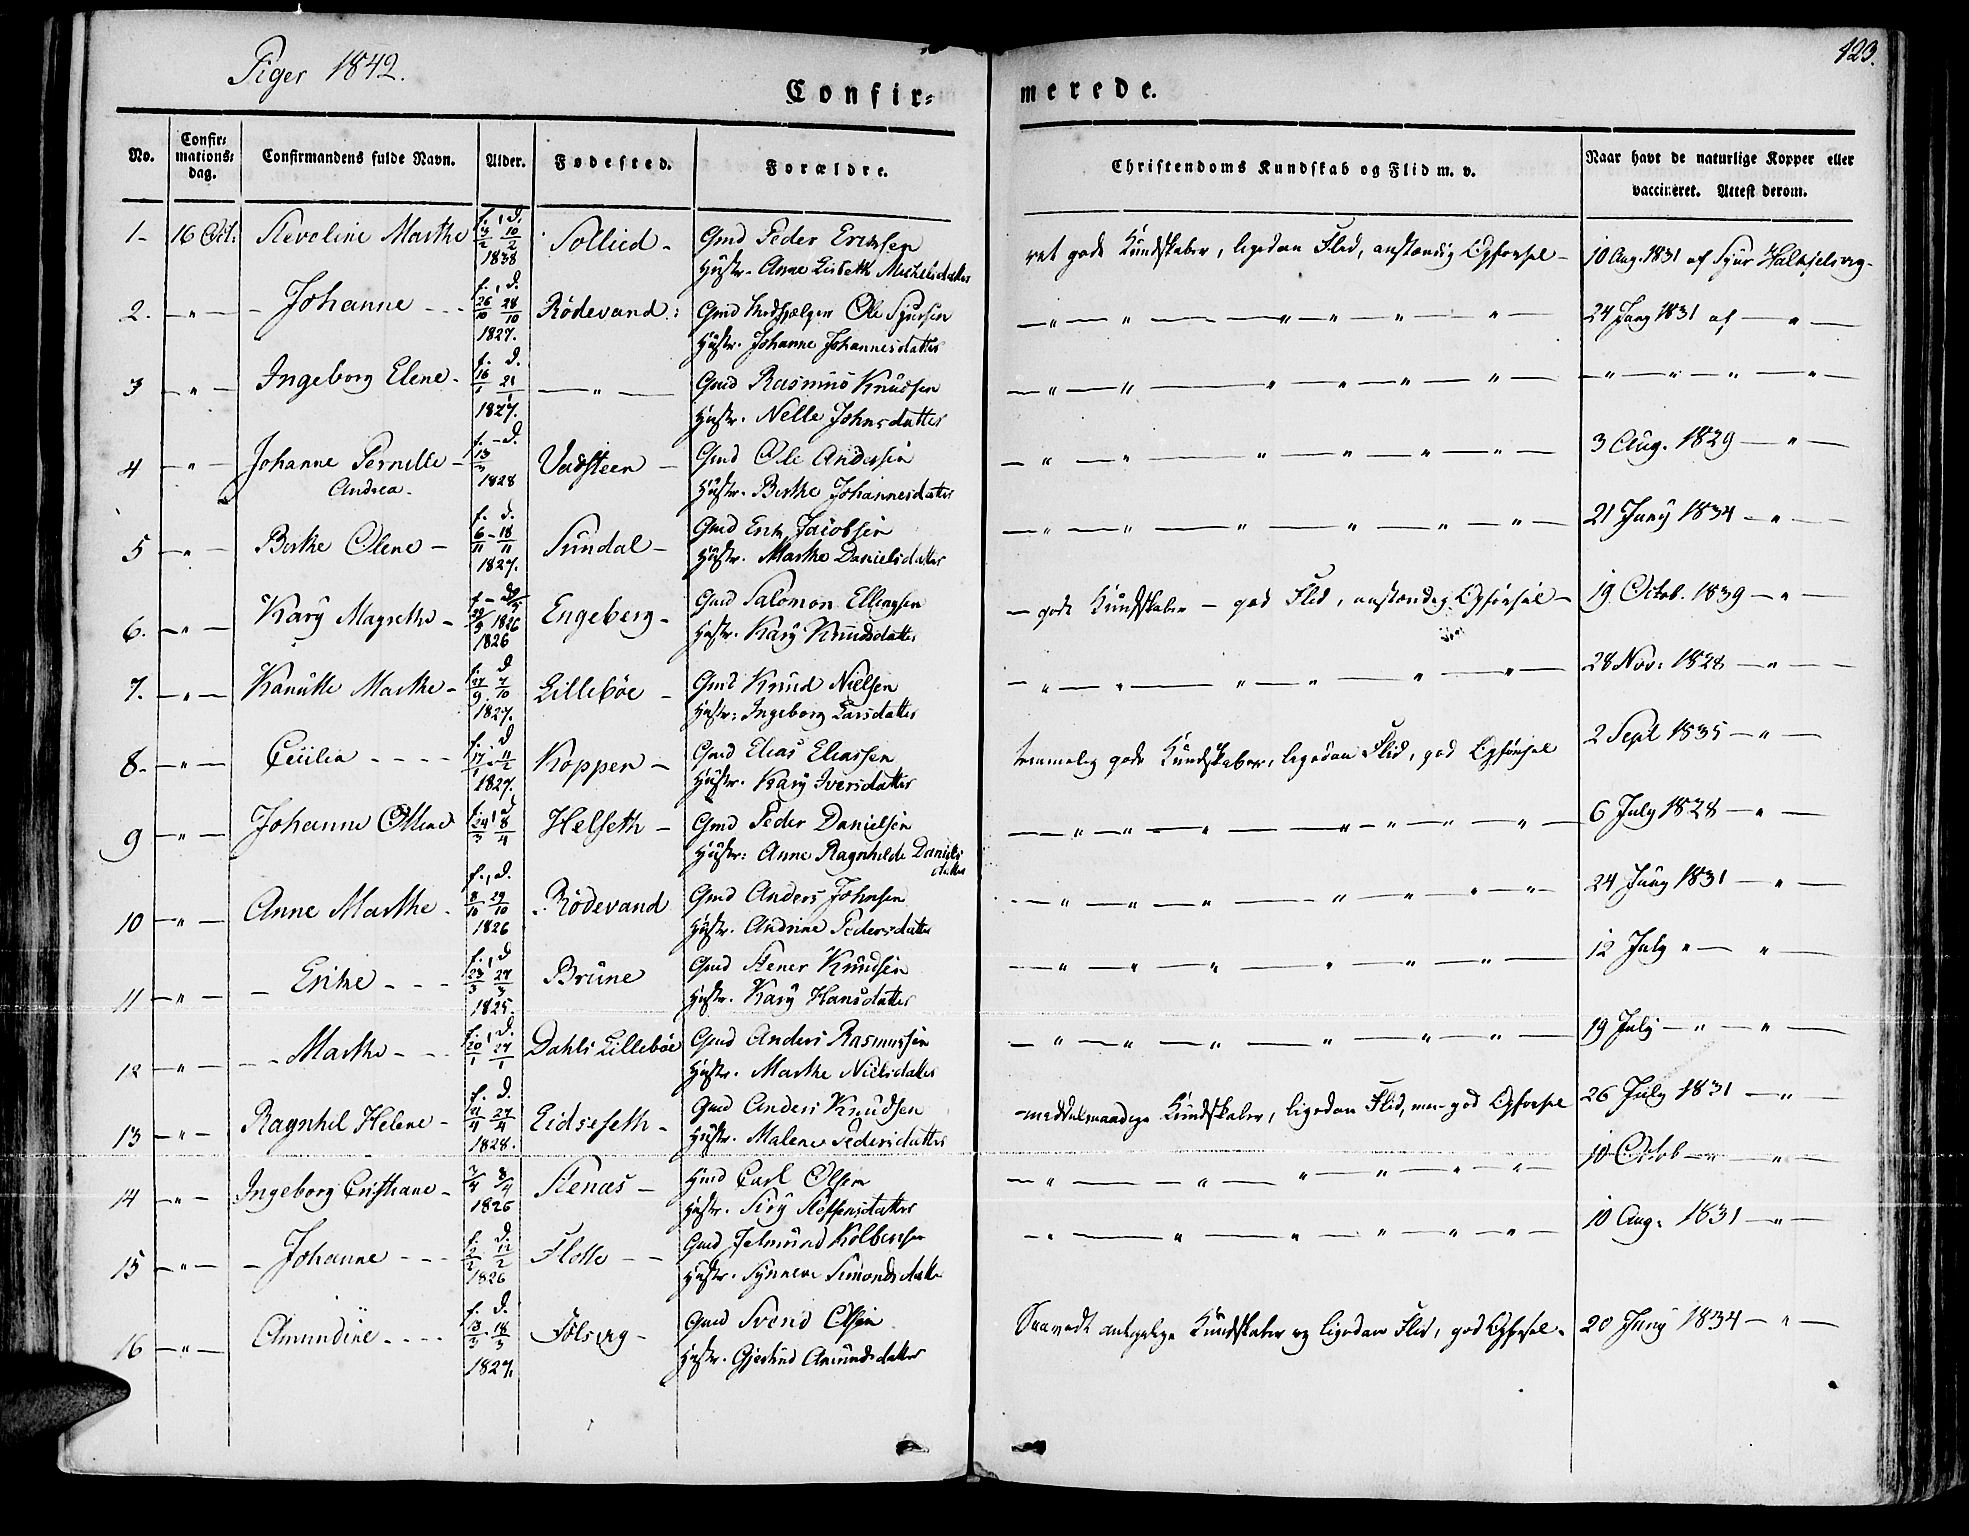 Piger 1842.
123.
Confir=
merede.
No.
Confir=
mations=
dag.
Confirmandens fulde Navn.
Alder.
Fødested.
Forældre.
Christendoms Kundskab og Flid m. v.
Naar havt de naturlige Kopper eller
vaccineret. Attest derom.
1- 16 Oct: Steveline Marthe f. 3/2 d. 10/2 1838 Sollied - Gmd Peder Ericksen
Hustr. Anne Lisbeth Michelsdatter
ret gode Kundskaber, ligedan Flid, anstændig Opførsel - 10 Aug. 1831 af Sjur Halkjelsvig-
2. - " - - Johanne - - - f. 26/10 d. 28/10 1827. Rödevand: Gmd Ole Sjursen
Hustr. Johanne Johannesdatter
- " - " - " - " - " - " - 24 Jany 1831 af - " -
3 - " - Ingeborg Elene - f. 16/1 d. 21/1 1827. - " - Gmd Rasmus Knudsen
Hustr. Nelle Johnsdatter
- " - " - " - " - " - " - - " - " - " - " -
4 - " - Johanne Pernille - f. - d. 13/3 1828 Vadsteen - Gmd Ole Andersen
Andrea.
Hustr. Berthe Johannesdatter
- " - " - " - " - " - " - 3 Aug. 1829 - " -
5 - " - Berthe Olene - f. 6/11 - d. 18/11 1827. Sundal - Gmd Erik Jacobsen
Hustr. Marthe Danielsdatter
- " - " - " - " - " - " - 21 Jany 1834 - " -
6. - " - Kary Magrethe - 1826 Engeberg - Gmd Salomon Ellingsen
Hustr. Kary Knudsdatter
- gode Kundskaber - god Flid, anstændig Opførsel - 19 Octob. 1839 - " -
7. - " - Kanutte Marthe - f. 27/9 d. 7/10 1827. Lilleböe - Gmd Knud Nielsen
Hustr: Ingeborg Larsdatter
- " - " - " - " - " - " - 28 Nov: 1828 - " -
8. - " - Cecilia - - - - f. 17/1 - d. 11/2 1827. Koppen - Gmd Elias Eliassen
Hustr. Kary Iversdatter
temmelig gode Kundskaber, ligedan Flid, god Opførsel 2 Sept 1835 - " -
9 - " - Johanne Oline f. 24/3 d. 8/4 Helseth - Gmd Peder Danielsen
Hustr: Anne Ragnhilde Daniels
datter
- " - " - " - " - " - " - 6 July 1828 - " -
10 - " - Anne Marthe - f. 8/10 d. 29/10 1826 Rödevand Gmd Anders Johnsen
Hustr. Andrine Pedersdatter
- " - " - " - " - " - " - 24 Juny 1831 - " -
11 - " - - Erike - - - f. 23/3 d. 27/3 1825. Brune Gmd Stener Knudsen
Hustr. Kary Hansdatter
- " - " - " - " - " - " - 12 July " - " -
12 - " - - Marthe - - - f. 20/1 d. 27/1 Dahls Lillebøe Gmd Anders Rasmussen
Hustr. Marthe Nielsdatter
- " - " - " - " - " - " - 19 July - " - " -
13 - " - Ragnhil Helene - f. 21/4 d. 27/4 1828. Eidseseth - Gmd Anders Knudsen
Hustr. Malene Pedersdatter
- middelmaadige Kundskaber, ligedan Flid, men god Opførsel 26 July 1831 - " -
14 - " - Ingeborg Cristiane - 2/4 3/4 1826 Stenas - Hmd Carl Olsen
Hustr. Siry Steffensdatter
- " - " - " - " - " - " - 10 Octob - " - " -
15 - " - - Johanne - - - f. 2/2 d. 12/2 1826 Flotte - - Gmd Jelmund Kolbensen
Hustr. Synneve Simondsdatter
- " - " - " - " - " - " - 10 Aug. 1831 - " -
16 - " - Amundine - - - - f. 13/3 - d. 18/3 1827. Fölsvig - Gmd Svend Olsen
Hustr. Gjertrud Amundsdatter
Saavidt antagelige Kundskaber og ligedan Flid, god Opførsel - 20 Juny 1834 - " -